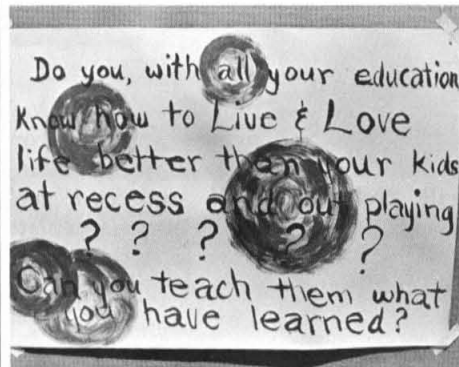 Do you, with all your education
Know how to Live & Love
life better than your kids
at recess and out playing
? ? ? ? ?
Can you teach them what
you have learned?